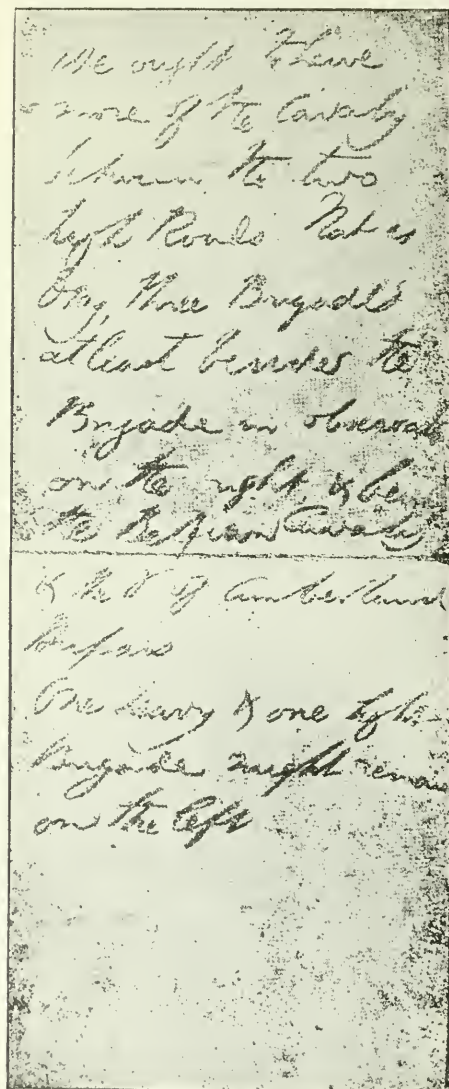 We ought to have
more of the Cavalry
between the two
high Roads. That is
to say, Three Brigades
at least besides the
Brigade in observat
on the right, & bes
the Belgian Cavalry
& the D of Cumberland
Hussars
One heavy & one light
Brigade might remain
on the left